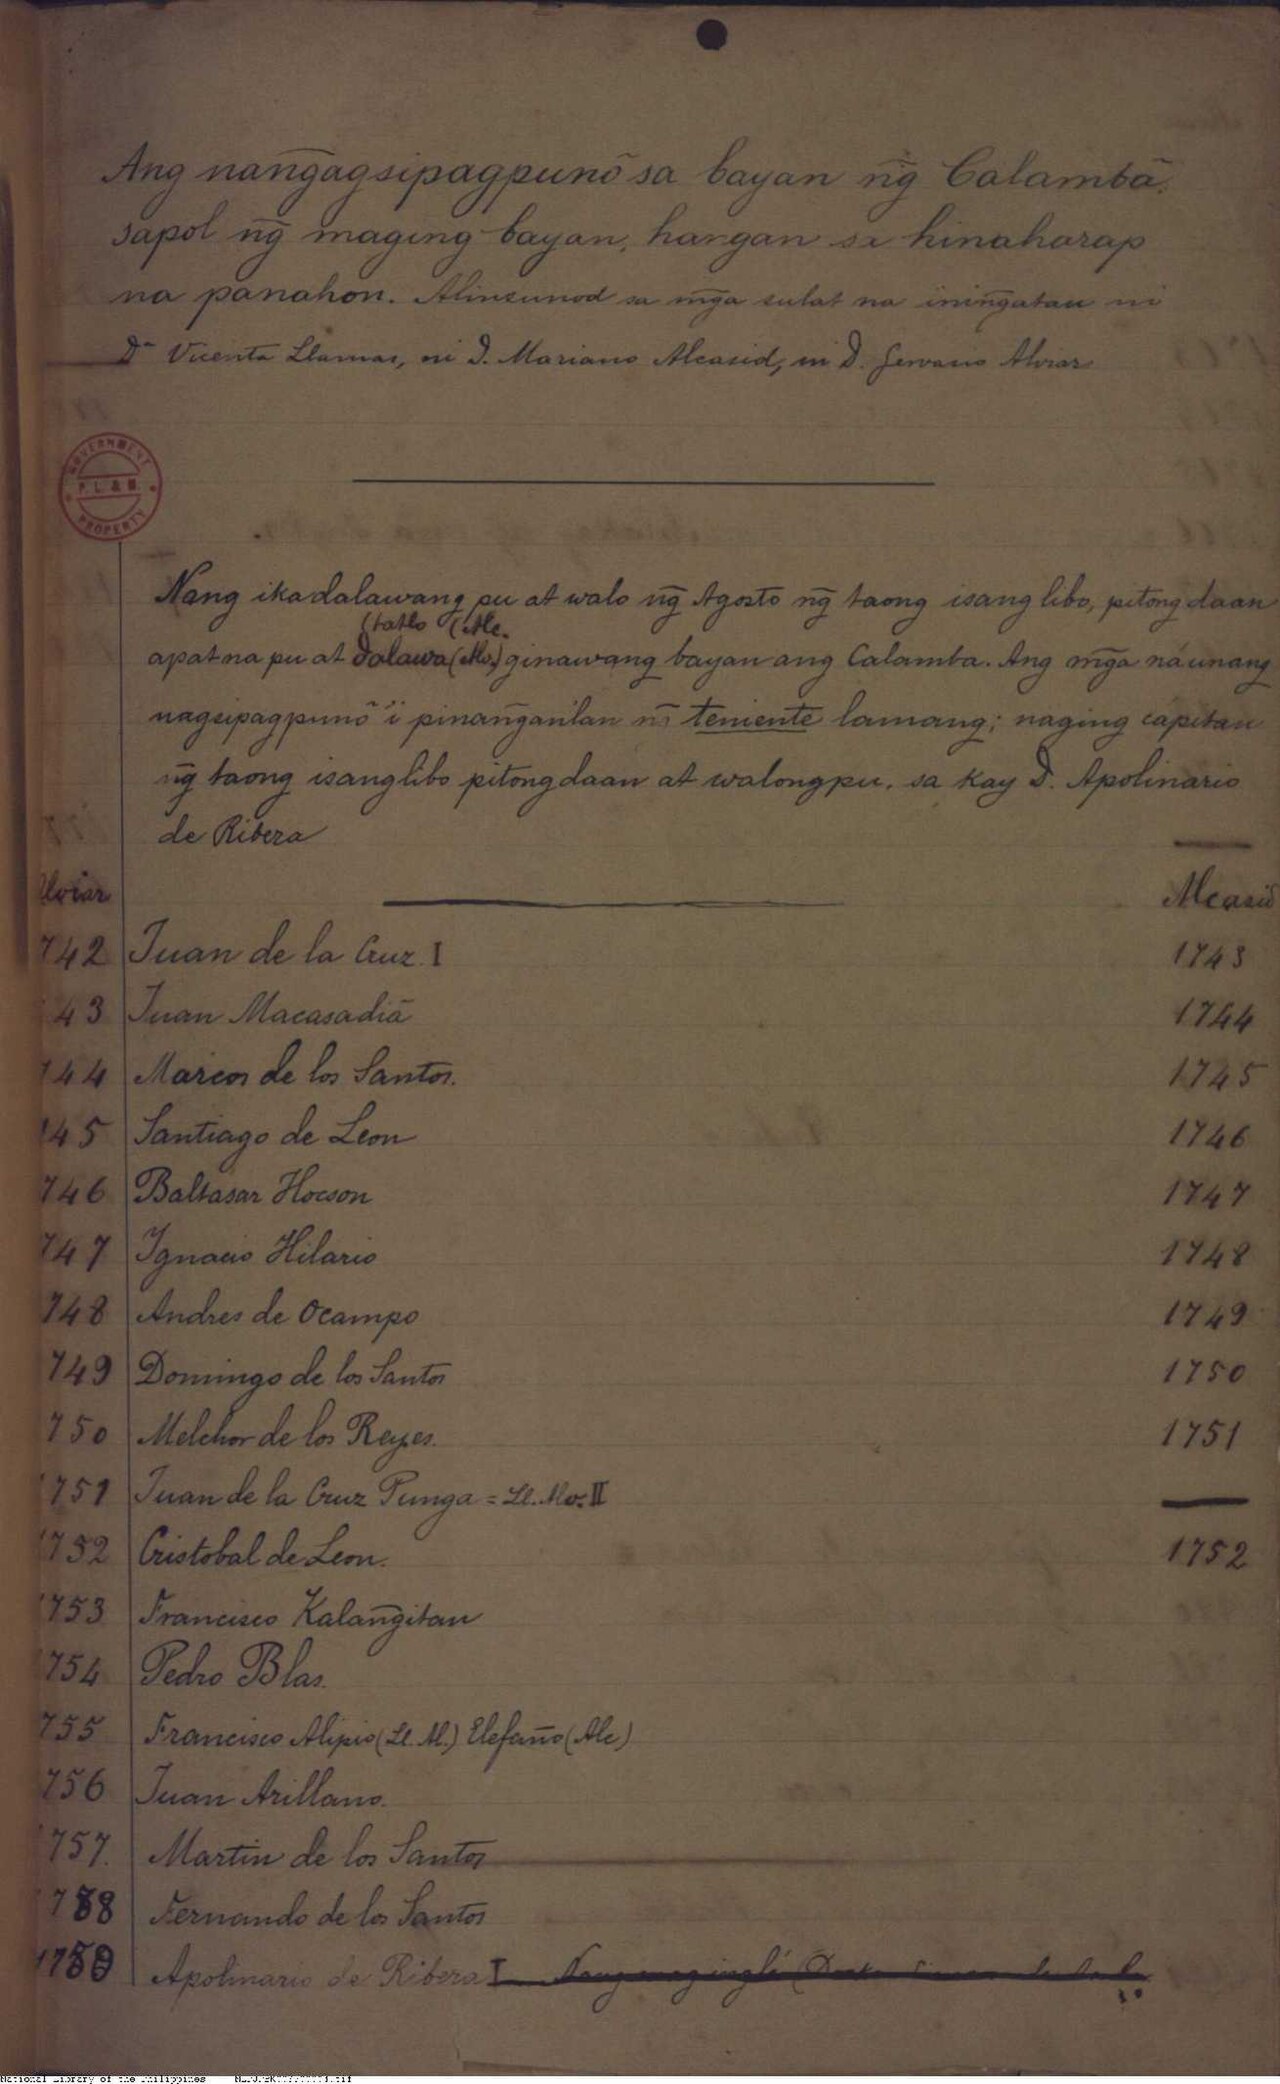 Ang nang̃agsipagpunò sa bayan ng̃ Calambâ,
sapol ng̃ maging bayan, hangan sa hinaharap
na panahon. Alinsunod sa mg̃a sulat na ining̃atan ni
Dª Vicenta Llamas, ni D. Mariano Alcasid, ni D. Gervacio Alviar
GOVERNMENT
P. L. & M.
PROPERTY
Nang ikadalawang pu at walo ng̃ Agosto ng̃ taong isang libo, pitong daan
(tatlo (Alc.
apat na pu at dalawa (Alv.) ginawang bayan ang Calamba. Ang mg̃a náunang
nagsipagpunò 'i pinang̃anlan ng̃ teniente lamang; naging capitan
ng̃ taong isang libo pitong daan at walong pu, sa kay D. Apolinario
de Ribera
Alviar Alcasid
742 Juan de la Cruz. I 1743
43 Juan Macasadiâ 1744
744 Marcos de los Santos. 1745
45 Santiago de Leon 1746
746 Baltasar Hocson 1747
747 Ignacio Hilario 1748
748 Andres de Ocampo 1749
749 Domingo de los Santos 1750
750 Melchor de los Reyes. 1751
1751 Juan de la Cruz Punga = Ll. Alv. II
1752 Cristobal de Leon. 1752
1753 Francisco Kalang̃itan
1754 Pedro Blas.
755 Francisco Alipio (Ll. Al.) Elefaño (Alc)
756 Juan Arillano.
757. Martin de los Santos
1758 Fernando de los Santos
1759 Apolinario de Ribera I
National Library of the Philippines